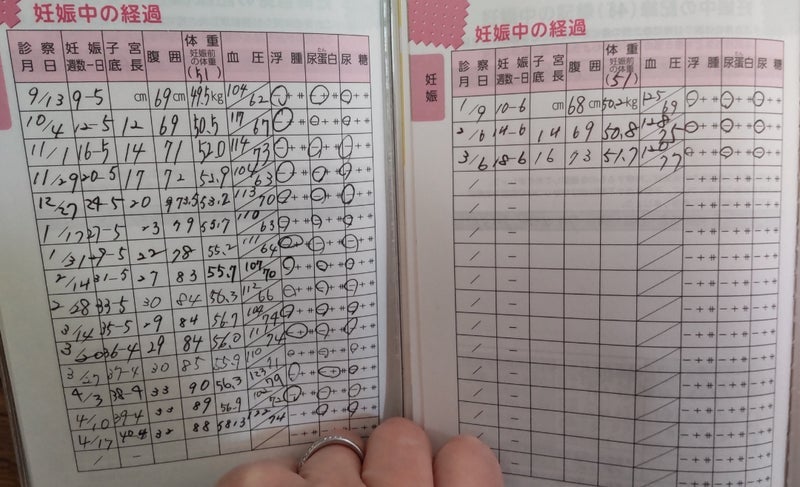 妊娠中の経過
診察月日 妊娠週数−日 子宮底長 腹囲 体重 妊娠前の体重 (51) 血圧 浮腫 尿蛋白 たん 尿糖
9/13 9-5 cm 69cm 49.5kg 104/62 − + ⧺ − + ⧺ − + ⧺
10/4 12-5 12 69 50.5 67 − + ⧺ − + ⧺ − + ⧺
11/1 16-5 14 71 52.0 114/73 − + ⧺ − + ⧺ − + ⧺
11/29 20-5 17 72 104/63 − + ⧺ − + ⧺ − + ⧺
12/27 24-5 20 73.5 53.2 113/70 − + ⧺ − + ⧺ − + ⧺
1/17 27-5 23 79 110/63 − + ⧺ − + ⧺ − + ⧺
1/31 29-5 22 78 55.2 111/64 − + ⧺ − + ⧺ − + ⧺
2/14 31-5 27 83 55.7 107/70 − + ⧺ − + ⧺ − + ⧺
2/28 33-5 30 84 56.3 112/66 − + ⧺ − + ⧺ − + ⧺
3/14 35-5 29 84 56.7 74 − + ⧺ − + ⧺ − + ⧺
3/20 36-4 29 84 56.0 74 − + ⧺ − + ⧺ − + ⧺
3/27 37-4 30 85 55.9 110/71 − + ⧺ − + ⧺ − + ⧺
4/3 38-4 33 90 56.3 123/79 − + ⧺ − + ⧺ − + ⧺
4/10 39-4 33 89 56.9 72 − + ⧺ − + ⧺ − + ⧺
4/17 40-4 32 88 58.3 122/74 − + ⧺ − + ⧺ − + ⧺
/ − / − + ⧺ − + ⧺ − + ⧺
妊娠中の経過
妊娠
診察月日 妊娠週数−日 子宮底長 腹囲 体重 妊娠前の体重 (51) 血圧 浮腫 尿蛋白 たん 尿糖
1/9 10-6 cm 68cm 50.2kg 125/69 − + ⧺ − + ⧺ − + ⧺
2/6 14-6 14 69 50.8 128/75 − + ⧺ − + ⧺ − + ⧺
3/6 18-6 16 73 51.7 77 − + ⧺ − + ⧺ − + ⧺
/ − / − + ⧺ − + ⧺ − + ⧺
/ − / − + ⧺ − + ⧺ − + ⧺
/ − / − + ⧺ − + ⧺ − + ⧺
/ − / − + ⧺ − + ⧺ − + ⧺
/ − / − + ⧺ − + ⧺ − + ⧺
/ − / − + ⧺ − + ⧺ − + ⧺
/ − / − + ⧺ − + ⧺ − + ⧺
/ − / − + ⧺ − + ⧺ − + ⧺
/ − / − + ⧺ − + ⧺ − + ⧺
/ − / − + ⧺ − + ⧺ − + ⧺
/ − / − + ⧺ − + ⧺ − + ⧺
/ − / − + ⧺ − + ⧺ − + ⧺